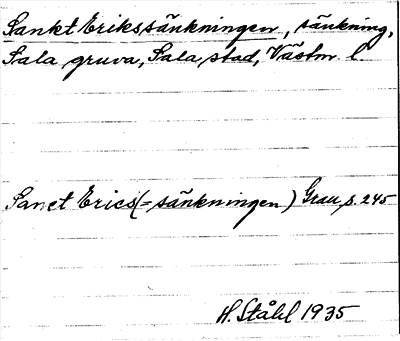 Sankt Erikssänkningen, sänkning,
Sala gruva, Sala stad, Västm. l.
Sanct Erics(=sänkningen) Grau, s. 245
H. Ståhl 1935